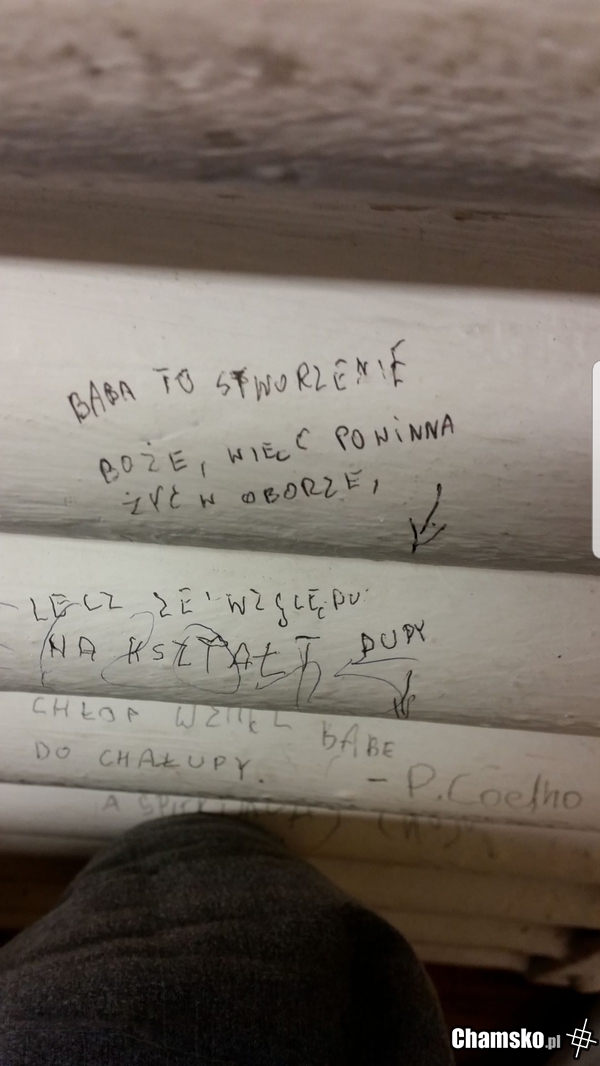 BABA TO STWORZENIE
BOŻE, WIĘC POWINNA
ŻYĆ W OBORZE,
LECZ ZE WZGLĘDU
NA KSZTAŁT DUPY
CHŁOP WZIĄŁ BABE
DO CHAŁUPY.
- P. Coelho
A
Chamsko.pl